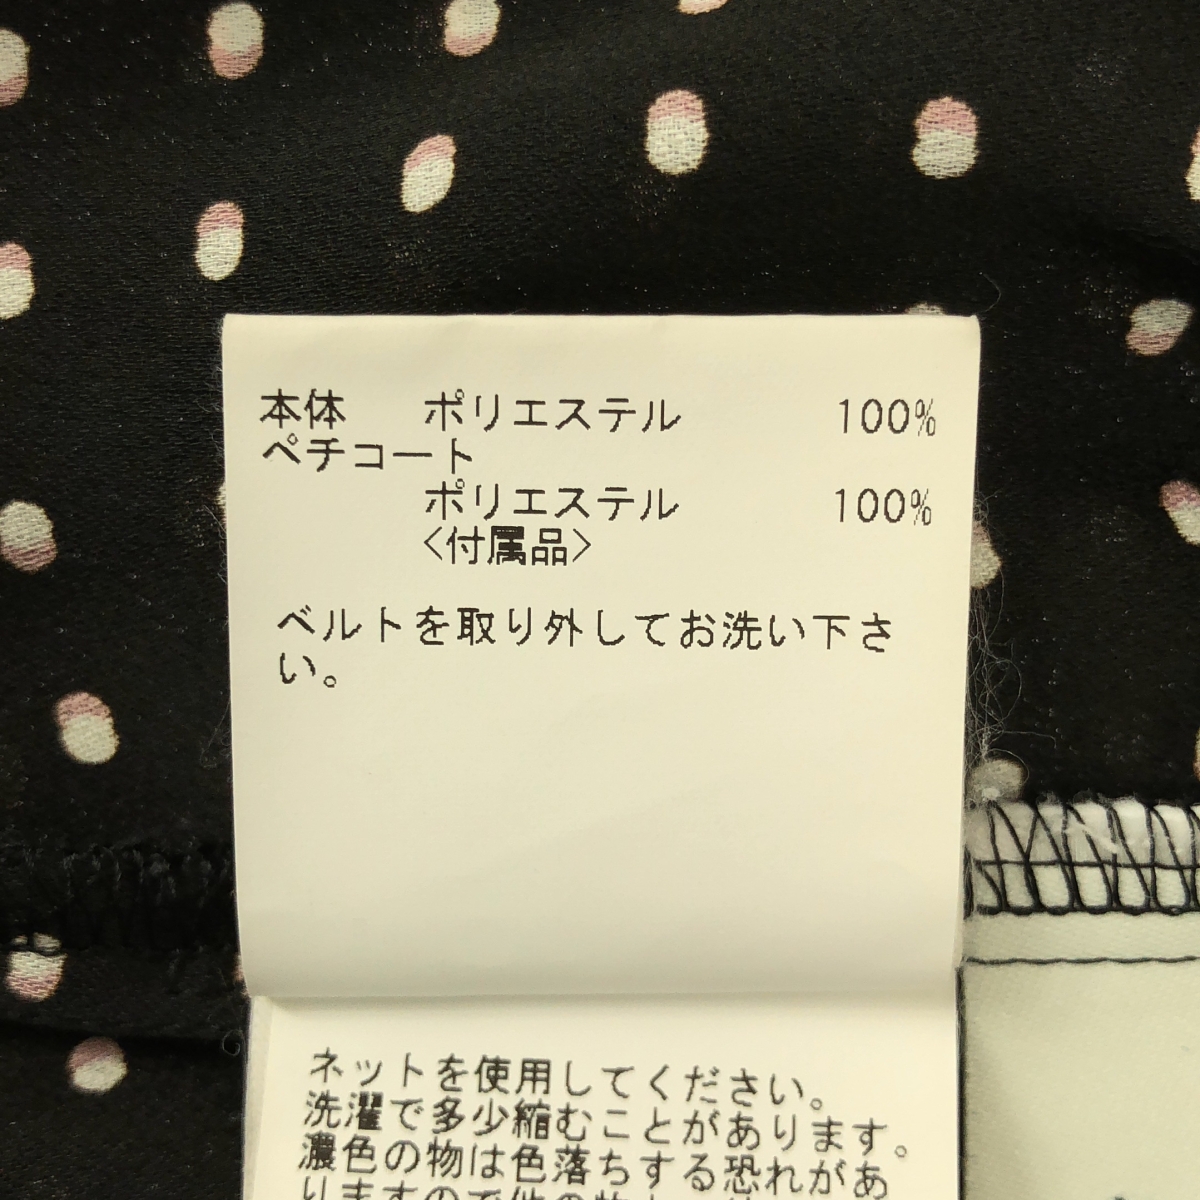 本体 ポリエステル 100%
ペチコート
ポリエステル 100%
<付属品>
ベルトを取り外してお洗い下さ
い。
ネットを使用してください。
洗濯で多少縮むことがあります。
濃色の物は色落ちする恐れがあ
りますので他の物